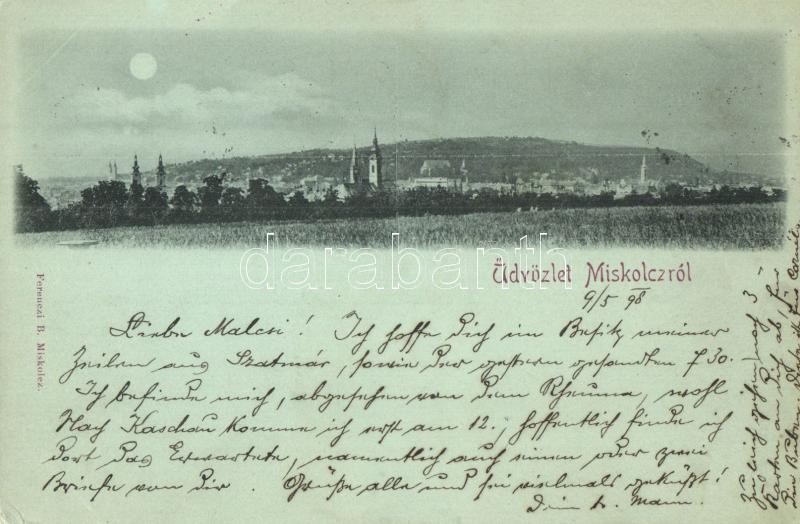 Üdvözlet Miskolczról
darabanth
9/5 98
Ferenczi B. Miskolcz.
Liebe Malcsi! Ich hoffe Dich im Besitz meiner
Zeilen aus Szatmár, sowie der gestern gesandten f 30.
Ich befinde mich, abgesehen von dem Rheuma, wohl
Nach Kaschau komme ich erst am 12., hoffentlich finde ich
dort das Erwartete, namentlich auch einen oder zwei
Briefe von Dir. Grüße alle und sei vielmals geküßt!
Dein l. Mann.